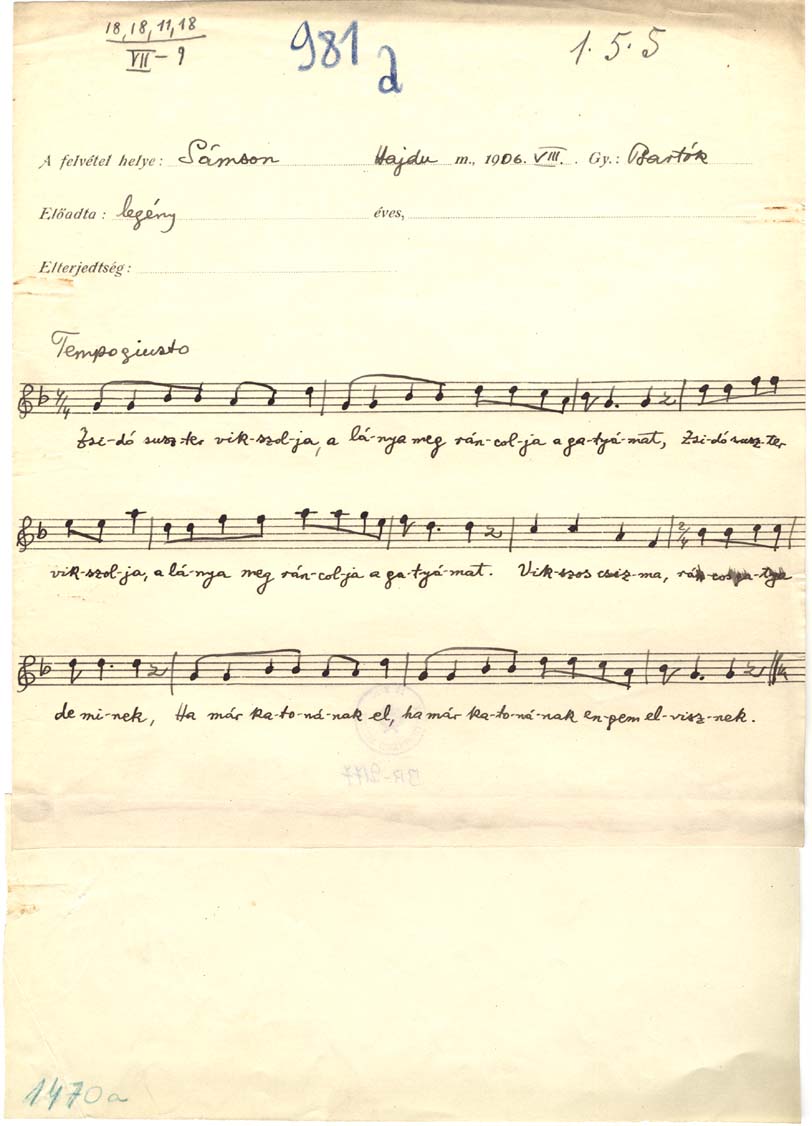 18, 18, 11, 18
VII - 9
981 a
1. 5. 5
A felvétel helye: Sámson Hajdu m., 1906. VIII. Gy.: Bartók
Előadta: legény éves,
Elterjedtség:
Tempo giusto
4/4
Zsi-dó susz-ter vik-szol-ja, a lá-nya meg rán-col-ja a ga-tyá-mat, Zsi-dó susz-ter
vik-szol-ja, a lá-nya meg rán-col-ja a ga-tyá-mat. Vik-szos csiz-ma, rán-cos ga-tya
2/4
de mi-nek, Ha már ka-to-ná-nak el, ha már ka-to-ná-nak en-gem el-visz-nek.
1470a